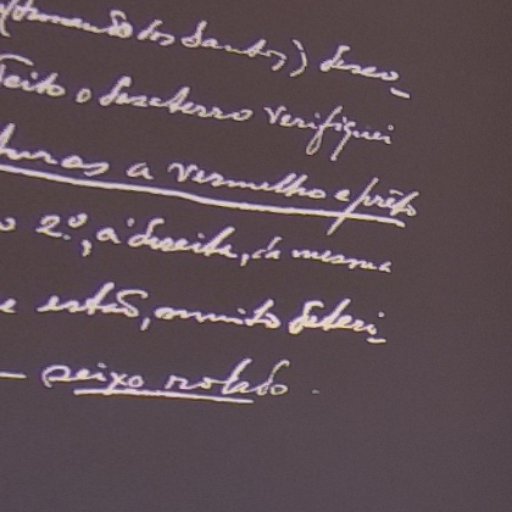 dos Santos) desco-
Feito o desaterro verifiquei
turas a vermelho e prêto
o 2.º, à direita, da mesma
e estão, muito deteri-
— peixo rolado.